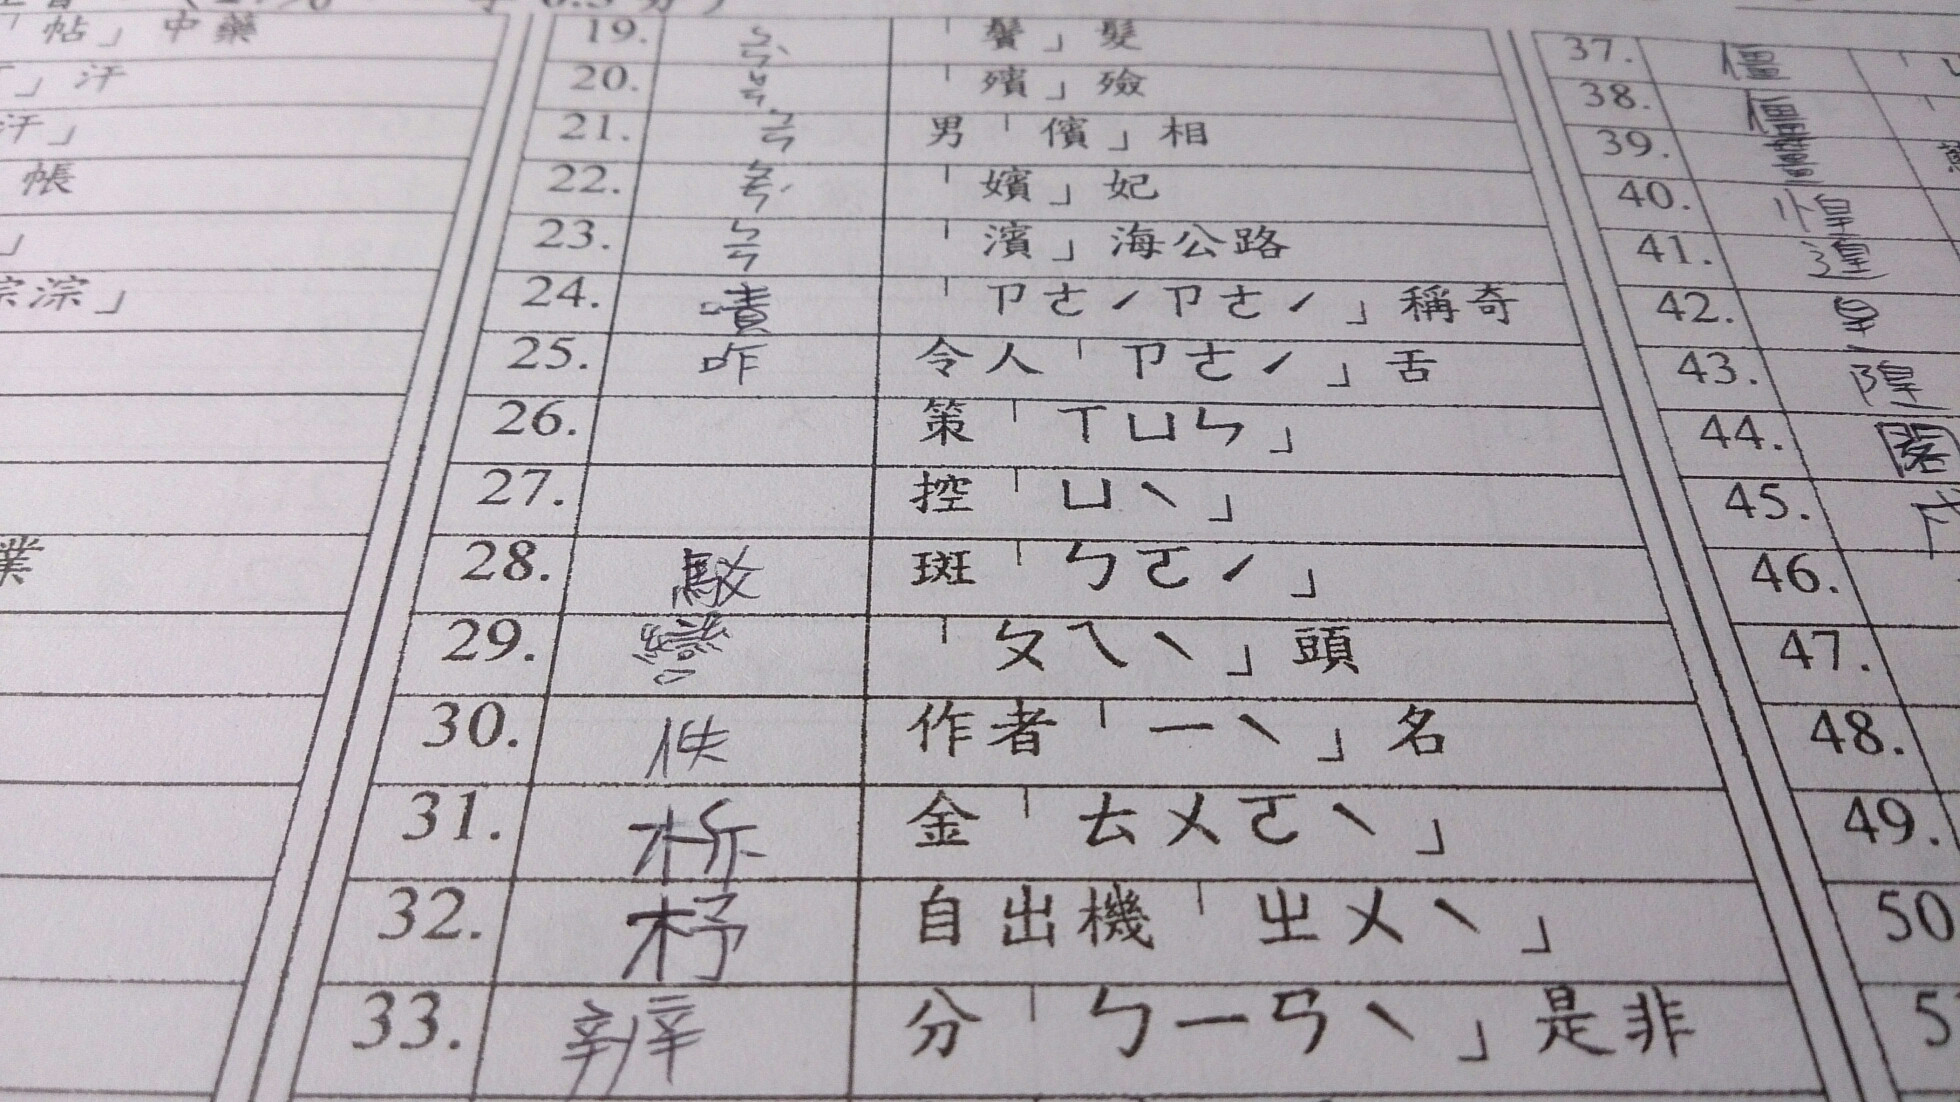 「帖」中藥
」汗
汗」
帳
」
淙淙」
業
19. ㄅㄧㄣˋ 「鬢」髮
20. 「殯」殮
21. ㄅㄧㄣ 男「儐」相
22. 「嬪」妃
23. ㄅㄧㄣ 「濱」海公路
24. 嘖 「ㄗㄜˊㄗㄜˊ」稱奇
25. 咋 令人「ㄗㄜˊ」舌
26. 策「ㄒㄩㄣ」
27. 控「ㄩˋ」
28. 駁 斑「ㄅㄛˊ」
29. 「ㄆㄟˋ」頭
30. 佚 作者「ㄧˋ」名
31. 柝 金「ㄊㄨㄛˋ」
32. 杼 自出機「ㄓㄨˋ」
33. 辨 分「ㄅㄧㄢˋ」是非
37. 僵
38.
39.
40. 惶
41. 遑
42. 皇
43. 隍
44.
45.
46.
47.
48.
49.
50
5